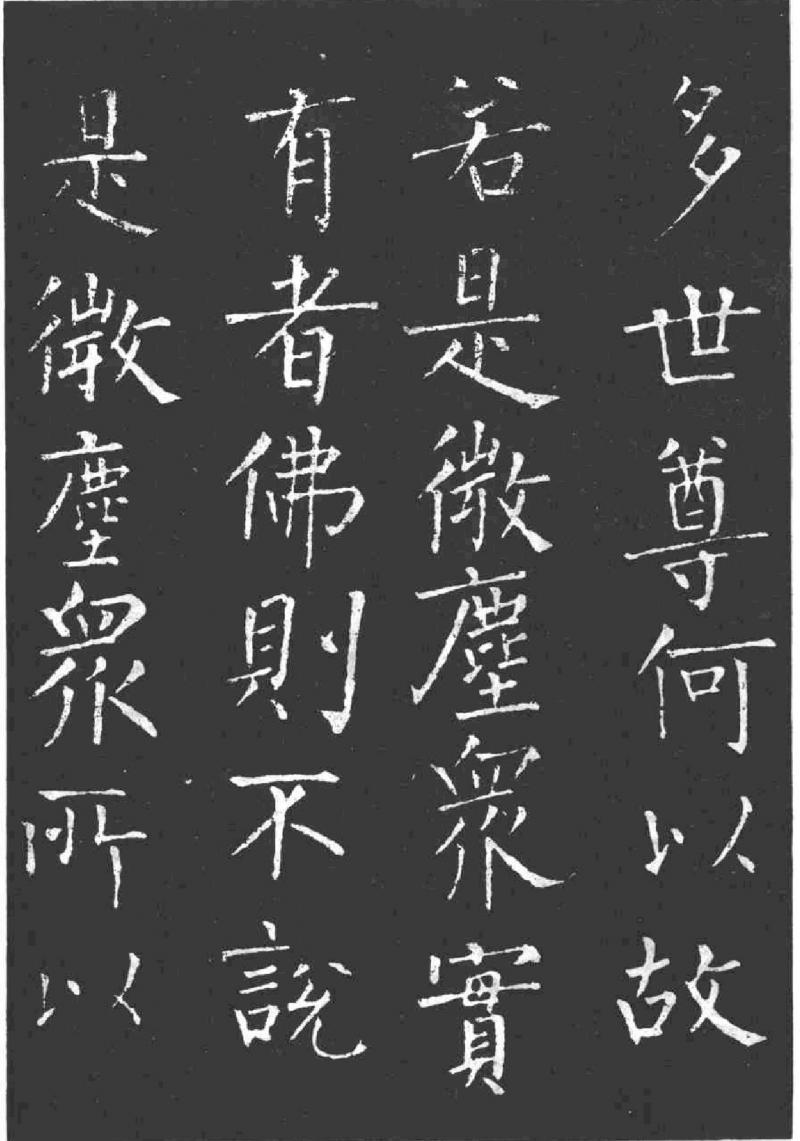 多世尊何以故
若是微塵眾實
有者佛則不說
是微塵眾所以